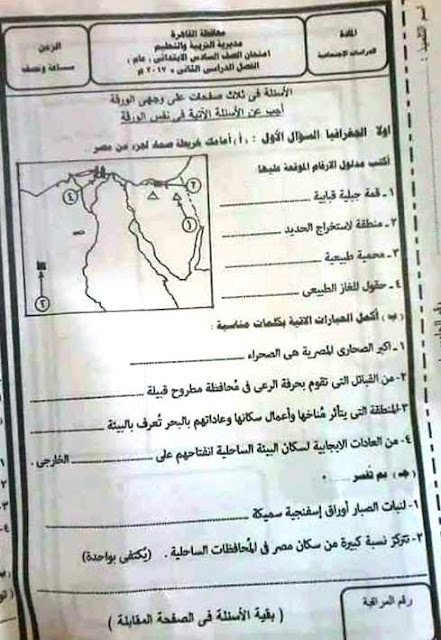 محافظة القاهرة
مديرية التربية والتعليم
امتحان الصف السادس الابتدائى ( عام )
الفصل الدراسى الثانى ٢٠١٧ م
المادة
الدراسات الإجتماعية
الزمن
ساعة ونصف
الأسئلة فى ثلاث صفحات على وجهى الورقة
أجب عن الأسئلة الآتية فى نفس الورقة
اولا الجغرافيا السؤال الأول : (أ) أمامك خريطة صماء لجزء من مصر
أكتب مدلول الارقام الموقعة عليها
١ - قمة جبلية قبابية
٢ - منطقة لاستخراج الحديد
٣ - محمية طبيعية
٤ - حقول للغاز الطبيعى
٤
٣
١
٢
(ب) أكمل العبارات الآتية بكلمات مناسبة :
١ - اكبر الصحارى المصرية هى الصحراء
٢- من القبائل التى تقوم بحرفة الرعى فى مُحافظة مطروح قبيلة
٣- المنطقة التى يتأثر مُناخها وأعمال سكانها وعاداتهم بالبحر تُعرف بالبيئة
٤- من العادات الإيجابية لسكان البيئة الساحلية انفتاحهم على الخارجى .
(جـ) بم تُفسر
١- لنبات الصبار أوراق إسفنجية سميكة
٢- تتركز نسبة كبيرة من سكان مصر فى المُحافظات الساحلية . (يُكتفى بواحدة)
( بقية الأسئلة فى الصفحة المقابلة )
رقم المراقبة
اسم التلميذ :